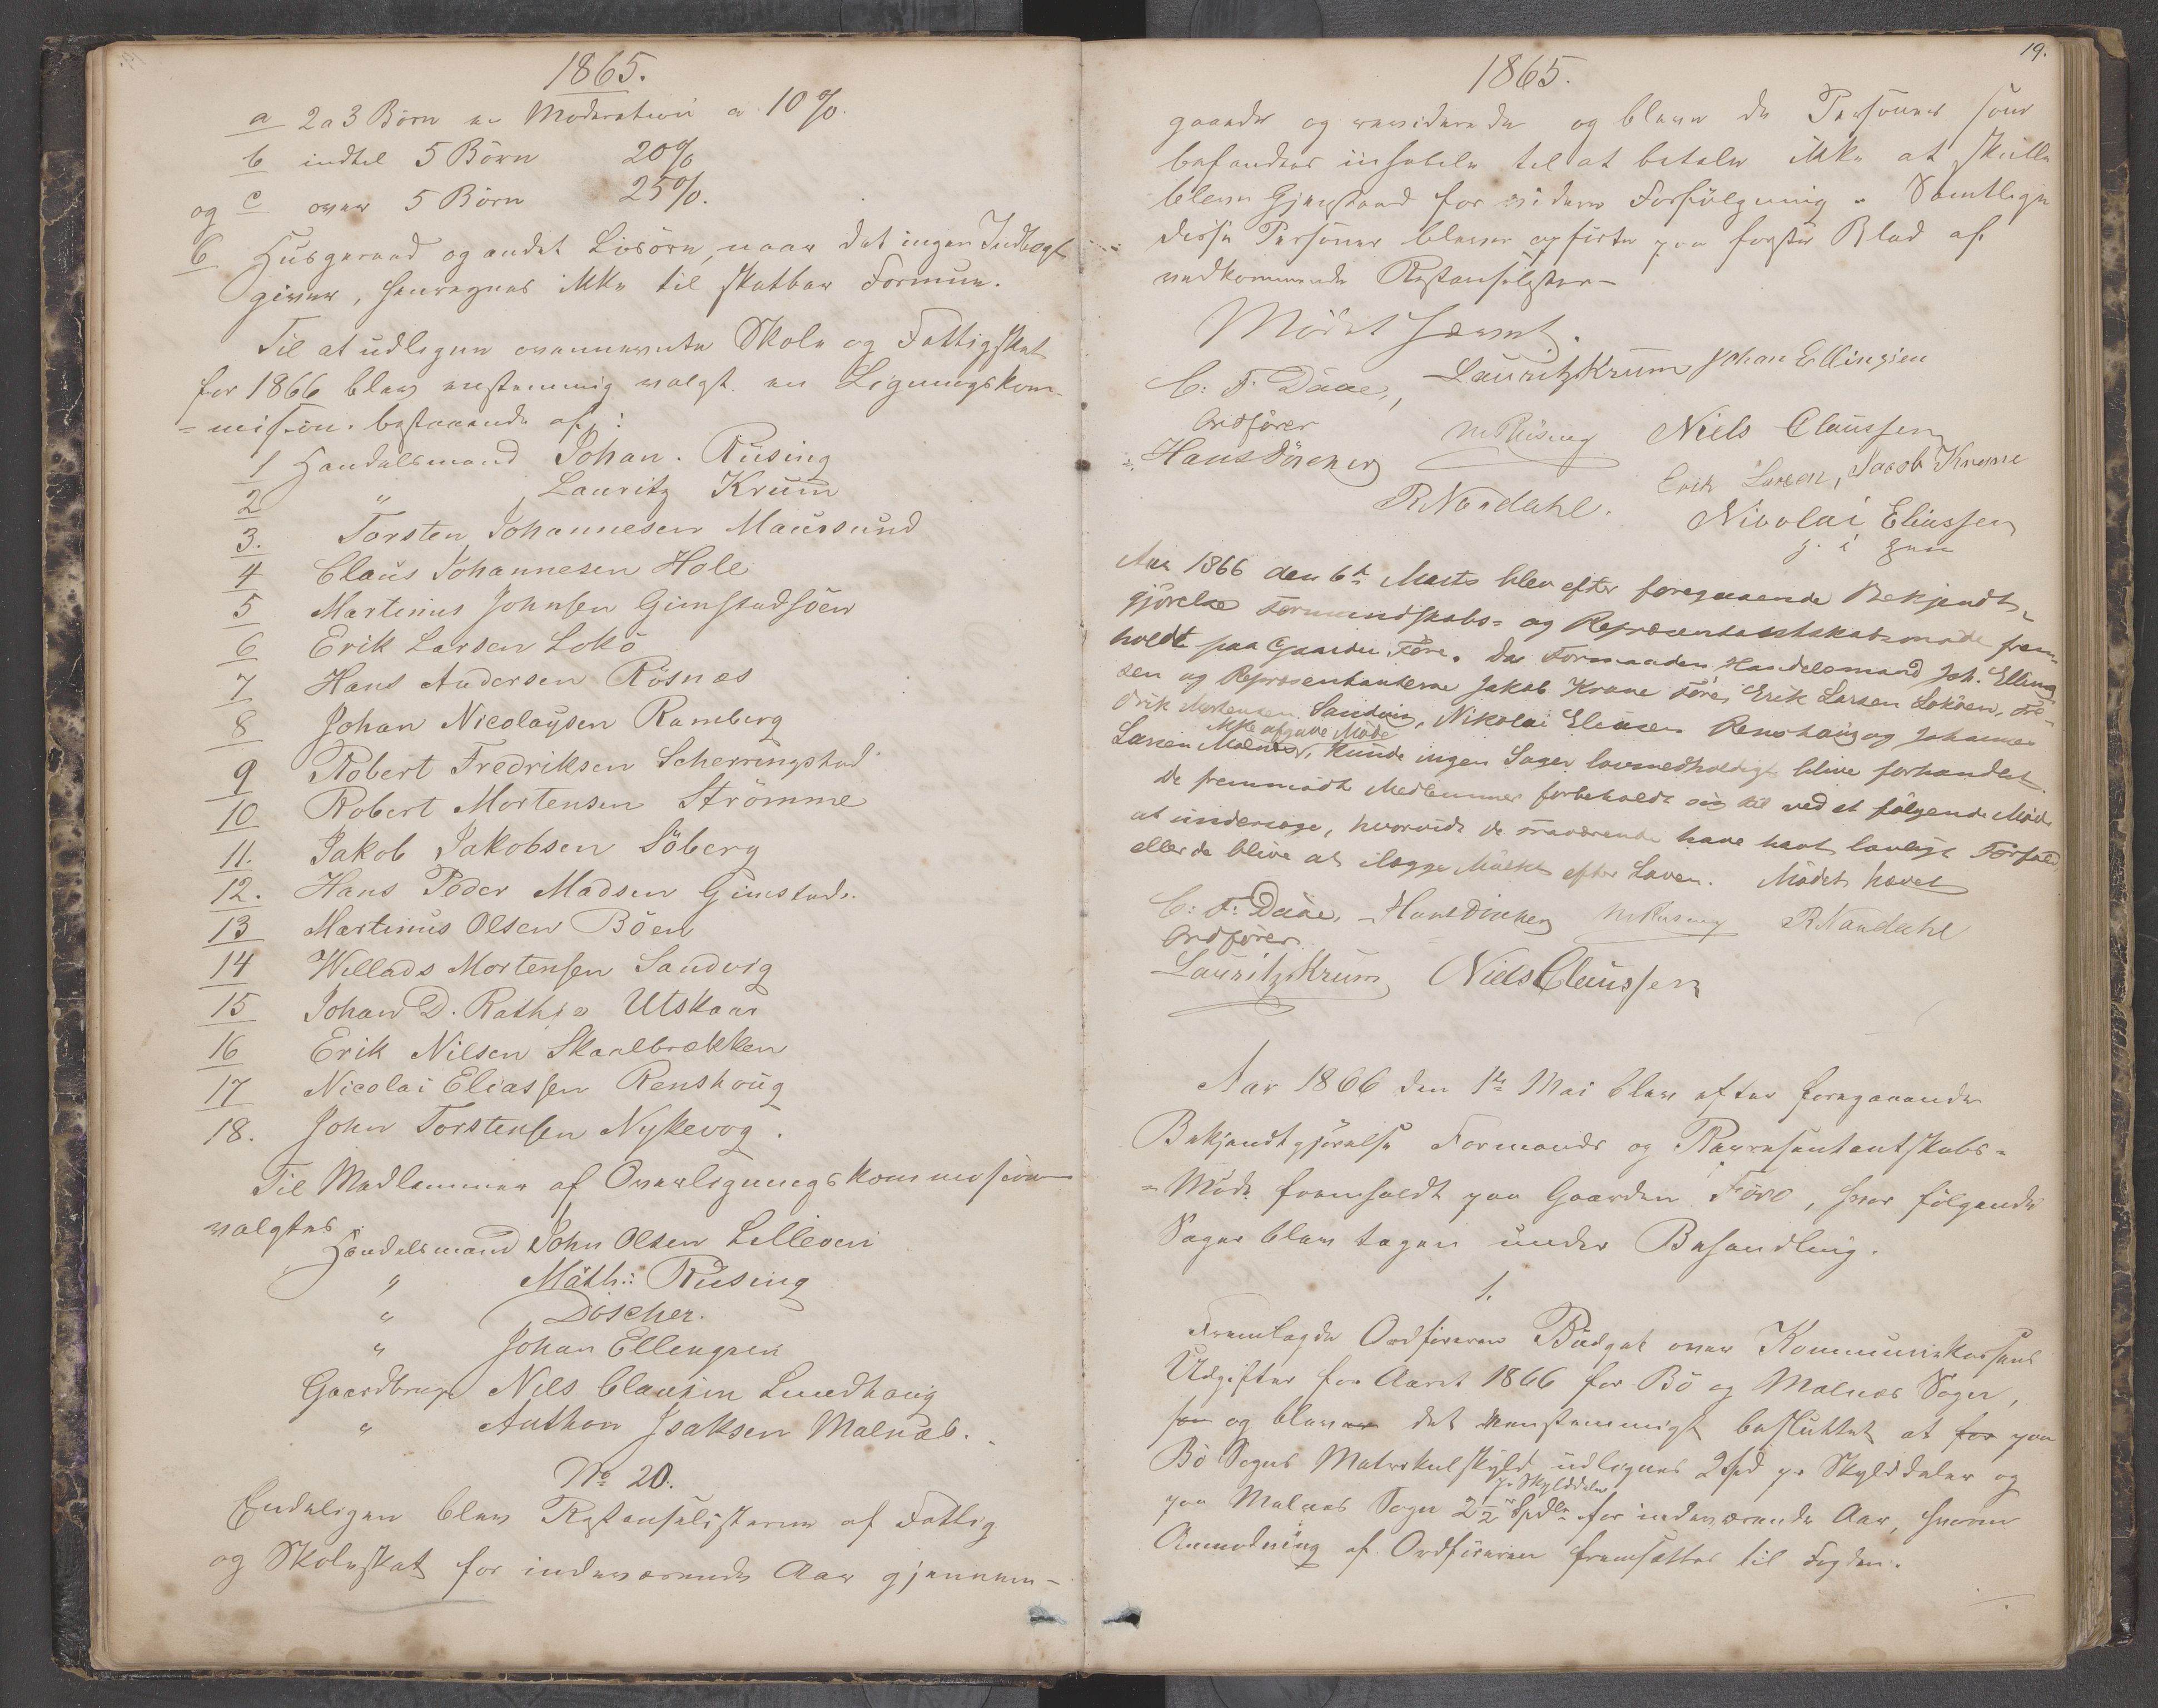 1865.
a 2 a 3 Börn en Moderation a 10%.
b indtil 5 Börn 20%
og c over 5 Börn 25%.
6 Husgeraad og andet Lösöre, naar det ingen Indtægt
giver, henregnes ikke til skatbar Formue.
Til at udligne ovennevnte Skole og Fattigskat
for 1866 blev enstemmig valgt en Ligningskom-
=mission bestaaende af:
1 Handelsmand Johan. Rüsing
2 " Lauritz Krum
3. Torsten Johannesen Maursund
4 Claus Johannesen Hole
5 Martinus Johnsen Gimstadsöen
6 Erik Larsen Lokö
7 Hans Andersen Rösnæs
8 Johan Nicolaysen Ramberg
9 Robert Fredriksen Scherringstad
10 Robert Mortensen Strömme
11. Jakob Jakobsen Söberg
12. Hans Peder Madsen Gimstad.
13 Martinus Olsen Böen
14 Willads Mortensen Sandvig
15 Johan D. Rathje Utskaar
16 Erik Nilsen Skaalbrækken
17 Nicolai Eliassen Renshoug
18. John Torstensen Nykevog.
Til Medlemmer af Overligningskommission
valgtes
Handelsmand John Olsen Lilleven
" Math: Rüsing
" Döscher.
" Johan Ellengsen
Gaardbruger Nils Clausen Lundhoug
" Anthon Isaksen Malnæs.
No 20.
Endeligen blev Restanselisterne af Fattig
og Skoleskat for indeværende Aar gjennem-
19.
1865.
gaaede og reviderede og bleve de Personer som
befandtes insolvente til at betale ikke at skulle
blive Gjenstand for videre Forfölgning. Samtlige
disse Personer bleve opförte paa forste Blad af
vedkommende Restanselister-
Mödet hævet.
C: F. Daae, Lauritz Krum Johan Ellingsen
Ordförer
M Rüsing Niels Claussen
Hans Döscher
Erik Larsen, Jacob Krane
R Nordahl. Nicolai Eliassen
Aar 1866 den 6te Marts blev efter foregaaende Bekjendt-
gjörelse Formandskabs- og Repræsentantskabsmöde frem-
holdt paa Gaarden Före. Da Formanden Handelsmand Joh. Elling-
sen og Repræsentanterne Jakob Krane Före, Erik Larsen Loköen, Fre-
drik Mortensen Sandvig, Nikolai Eliasen Renshaug og Johannes
Larsen Malnæs, kunde ingen Sager lovmedholdigt blive forhandlet.
De fremmödte Medlemmer forbeholdt sig til ved et fölgende Möde
at undersöge, hvorvidt de fraværende have havt lovligt Forfald,
eller de blive at ilægge Mulkt efter Loven. Mödet hævet
C: F: Daae, Hans Döscher M Rüsing R Nordahl
Ordförer.
Lauritz Krum Niels Claussen
Aar 1866 den 1te Mai blev efter foregaaende
Bekjendtgjörelse Formands og Repræsentantskabs=
=Möde fremholdt paa Gaarden Före, hvor fölgende
Sager blev tagen under Behandling.
1.
Fremlagde Ordföreren Budget over Kommunekassens
Udgifter for Aaret 1866 for Bö og Malnæs Sogn,
og blev det enstemmigt besluttet at for paa
Bö Sogns Matrikulskyld udlignes 2 Spd pr Skylddaler og
pr Skylddaler
paa Malnæs Sogn 2 1/2 Spdlr for indeværende Aar, hvorom
Anmodning af Ordföreren fremsættes til Fogden.